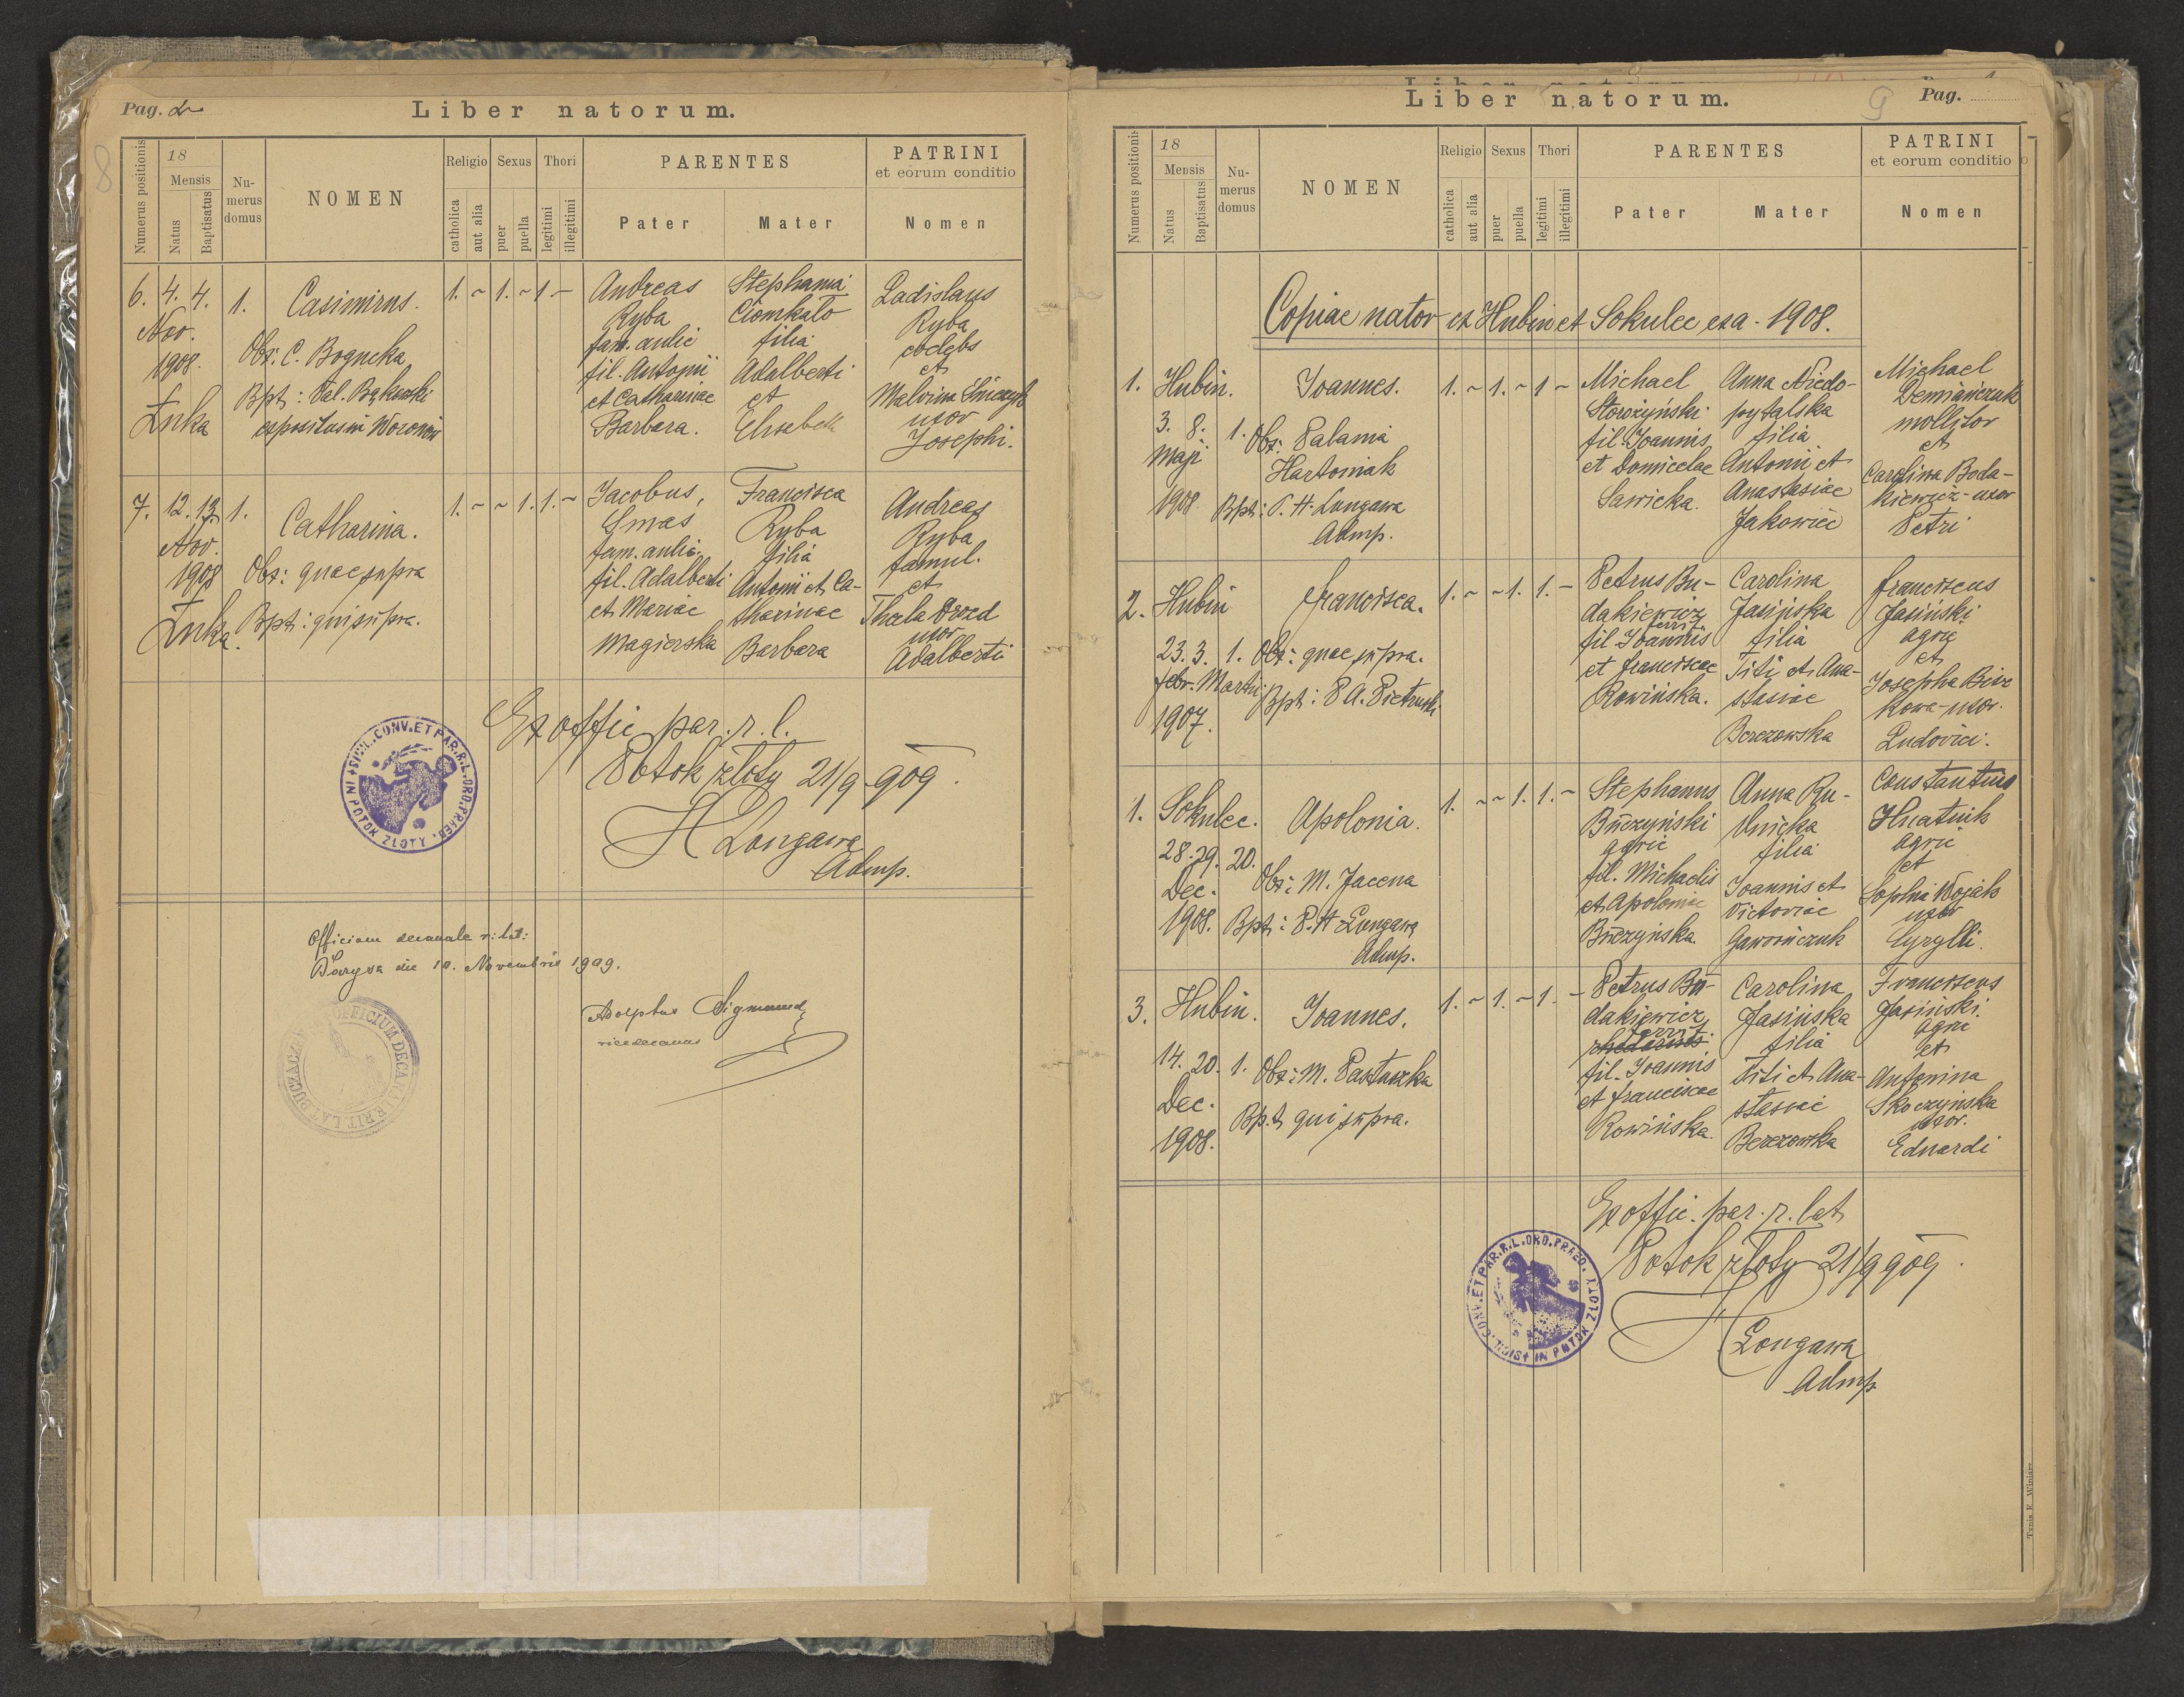 Pag. 2
Liber natorum.
8
Numerus positionis
18
Mensis
Natus
Baptisatus
Numerus domus
NOMEN
Religio
catholica
aut alia
Sexus
puer
puella
Thori
legitimi
illegitimi
PARENTES
Pater
Mater
PATRINI
et eorum conditio
Nomen
6. 4. 4. 1. Casimirus. 1. ~ 1. ~ 1 —
Nov.
1908.
Łuka
Obs: C. Bogucka
Bpt: Val. Bąkowski
expositus in Woronow
Andreas
Ryba
fam. aulic
fil. Antonii
et Catharinae
Barbara.
Stephania
Ciomkało
filia
Adalberti
et
Elisabeth
Ladislaus
Ryba
coelebs
et
Malvina
uxor
Josephi.
7. 12. 13. 1. Catharina. 1. ~ ~ 1. 1. ~
Nov.
1908
Łuka.
Obs: quae supra
Bpt: qui supra.
Jacobus,
Gmas
fam. aulic.
fil. Adalberti
et Mariae
Magierska
Francisca
Ryba
filia
Antonii et Ca-
tharinae
Barbara
Andreas
Ryba
famul.
et
Thecla Drozd
uxor
Adalberti
Ex offic par. r. l.
Potok złoty 21/9 909.
H Longawa
Admp.
SIGIL. CONV. ET PAR. R. L. ORD. PRAED. IN POTOK ZŁOTY
Officium decanale r: lat:
Barysz die 10. Novembris 1909.
Adolphus Sigmund
vicedecanus
OFFICIUM DECANALE RIT. LAT. BUCZACZ
Liber natorum.
9
Pag.
Numerus positionis
18
Mensis
Natus
Baptisatus
Numerus domus
NOMEN
Religio
catholica
aut alia
Sexus
puer
puella
Thori
legitimi
illegitimi
PARENTES
Pater
Mater
PATRINI
et eorum conditio
Nomen
Copiae nator ex Hubin et Sokulec ex a. 1908.
1. Hubin. Joannes. 1. ~ 1. ~ 1 ~
3. 8. 1.
Maji
1908.
Obs: Palania
Hartoniak
Bpt: P. H. Longawa
Admp.
Michael
Storożyński
fil. Joannis
et Domicelae
Sawicka.
Anna Niedo-
pytalska
filia
Antonii et
Anastasiae
Jakowiec
Michael
Demiańczuk
mollitor
et
Carolina Boda-
kiewicz - uxor
Petri
2. Hubin Francisca. 1. ~ ~ 1. 1. —
23. 3. 1.
Febr. Martii
1907.
Obs: quae supra.
Bpt: P A. Pietruski
Petrus Bu-
dakiewicz
fil Joannis
et Franciscae
Rowińska.
Carolina
Jasińska
filia
Titi et Ana-
stasiae
Berezowska
Franciscus
Jasiński
agric
et
Josepha
uxor.
Ludovici.
1. Sokulec. Apolonia. 1. ~ ~ 1. 1. ~
28. 29. 20.
Dec.
1908.
Obs: M. Jacena
Bpt: P. H Longawa
Admp.
Stephanus
Buczyński
agric
fil. Michaelis
et Apoloniae
Buczyńska.
Anna Ru-
filia
Joannis et
Victoriae
Gaworńczuk
Constantius
Hnatiuk
agric
et
Sophia Wojak
uxor
Cyrylli.
3. Hubin. Joannes. 1. ~ 1. ~ 1. —
14. 20. 1.
Dec.
1908.
Obs: M. Pastuszka
Bpt qui supra.
Petrus Bu-
dakiewicz
fil. Joannis
et Franciscae
Rowińska.
Carolina
Jasinska
filia
Titi et Ana-
stasiae
Berezowska
Franciscus
Jasiński.
agric
et
Antonina
Skoczyńska
uxor.
Eduardi
Ex offic. par. r. lat
Potok złoty 21/9 909.
H Longawa
Admp
SIGIL. CONV. ET PAR. R. L. ORD. PRAED. IN POTOK ZŁOTY